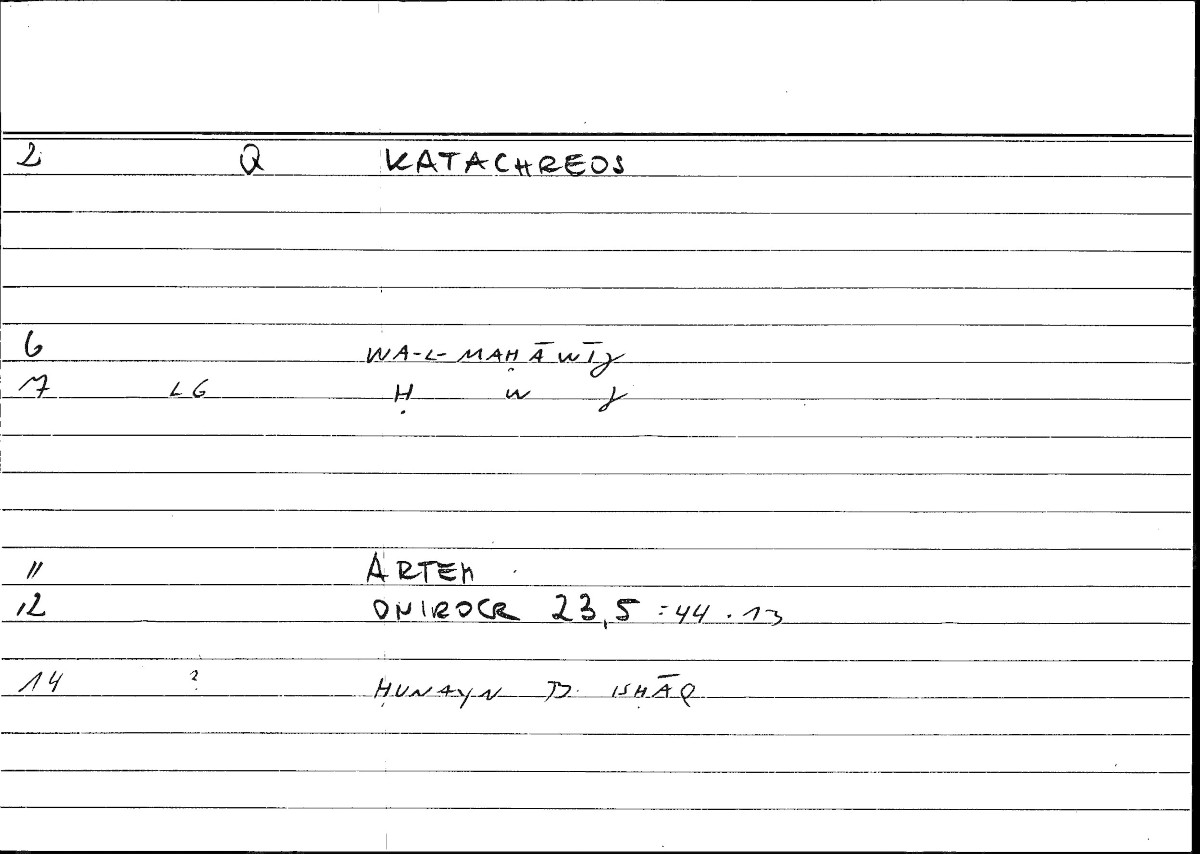 2 Q KATACHREOS
6 WA-L-MAḤĀWĪJ
7 LG Ḥ W J
11 ARTEM
12 ONIROCR 23,5 =44.13
14 ? ḤUNAYN B. ISḤĀQ